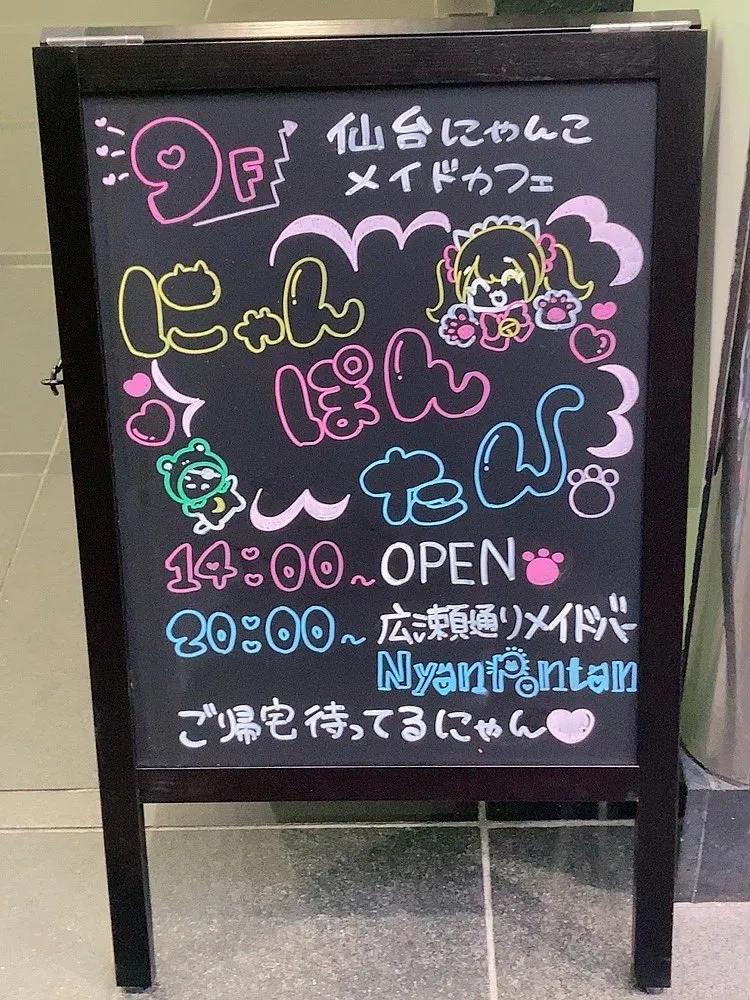 9F
仙台にゃんこ
メイドカフェ
にゃん
ぽん
たん
14:00~ OPEN
20:00~ 広瀬通りメイドバー
NyanPontan
ご帰宅待ってるにゃん